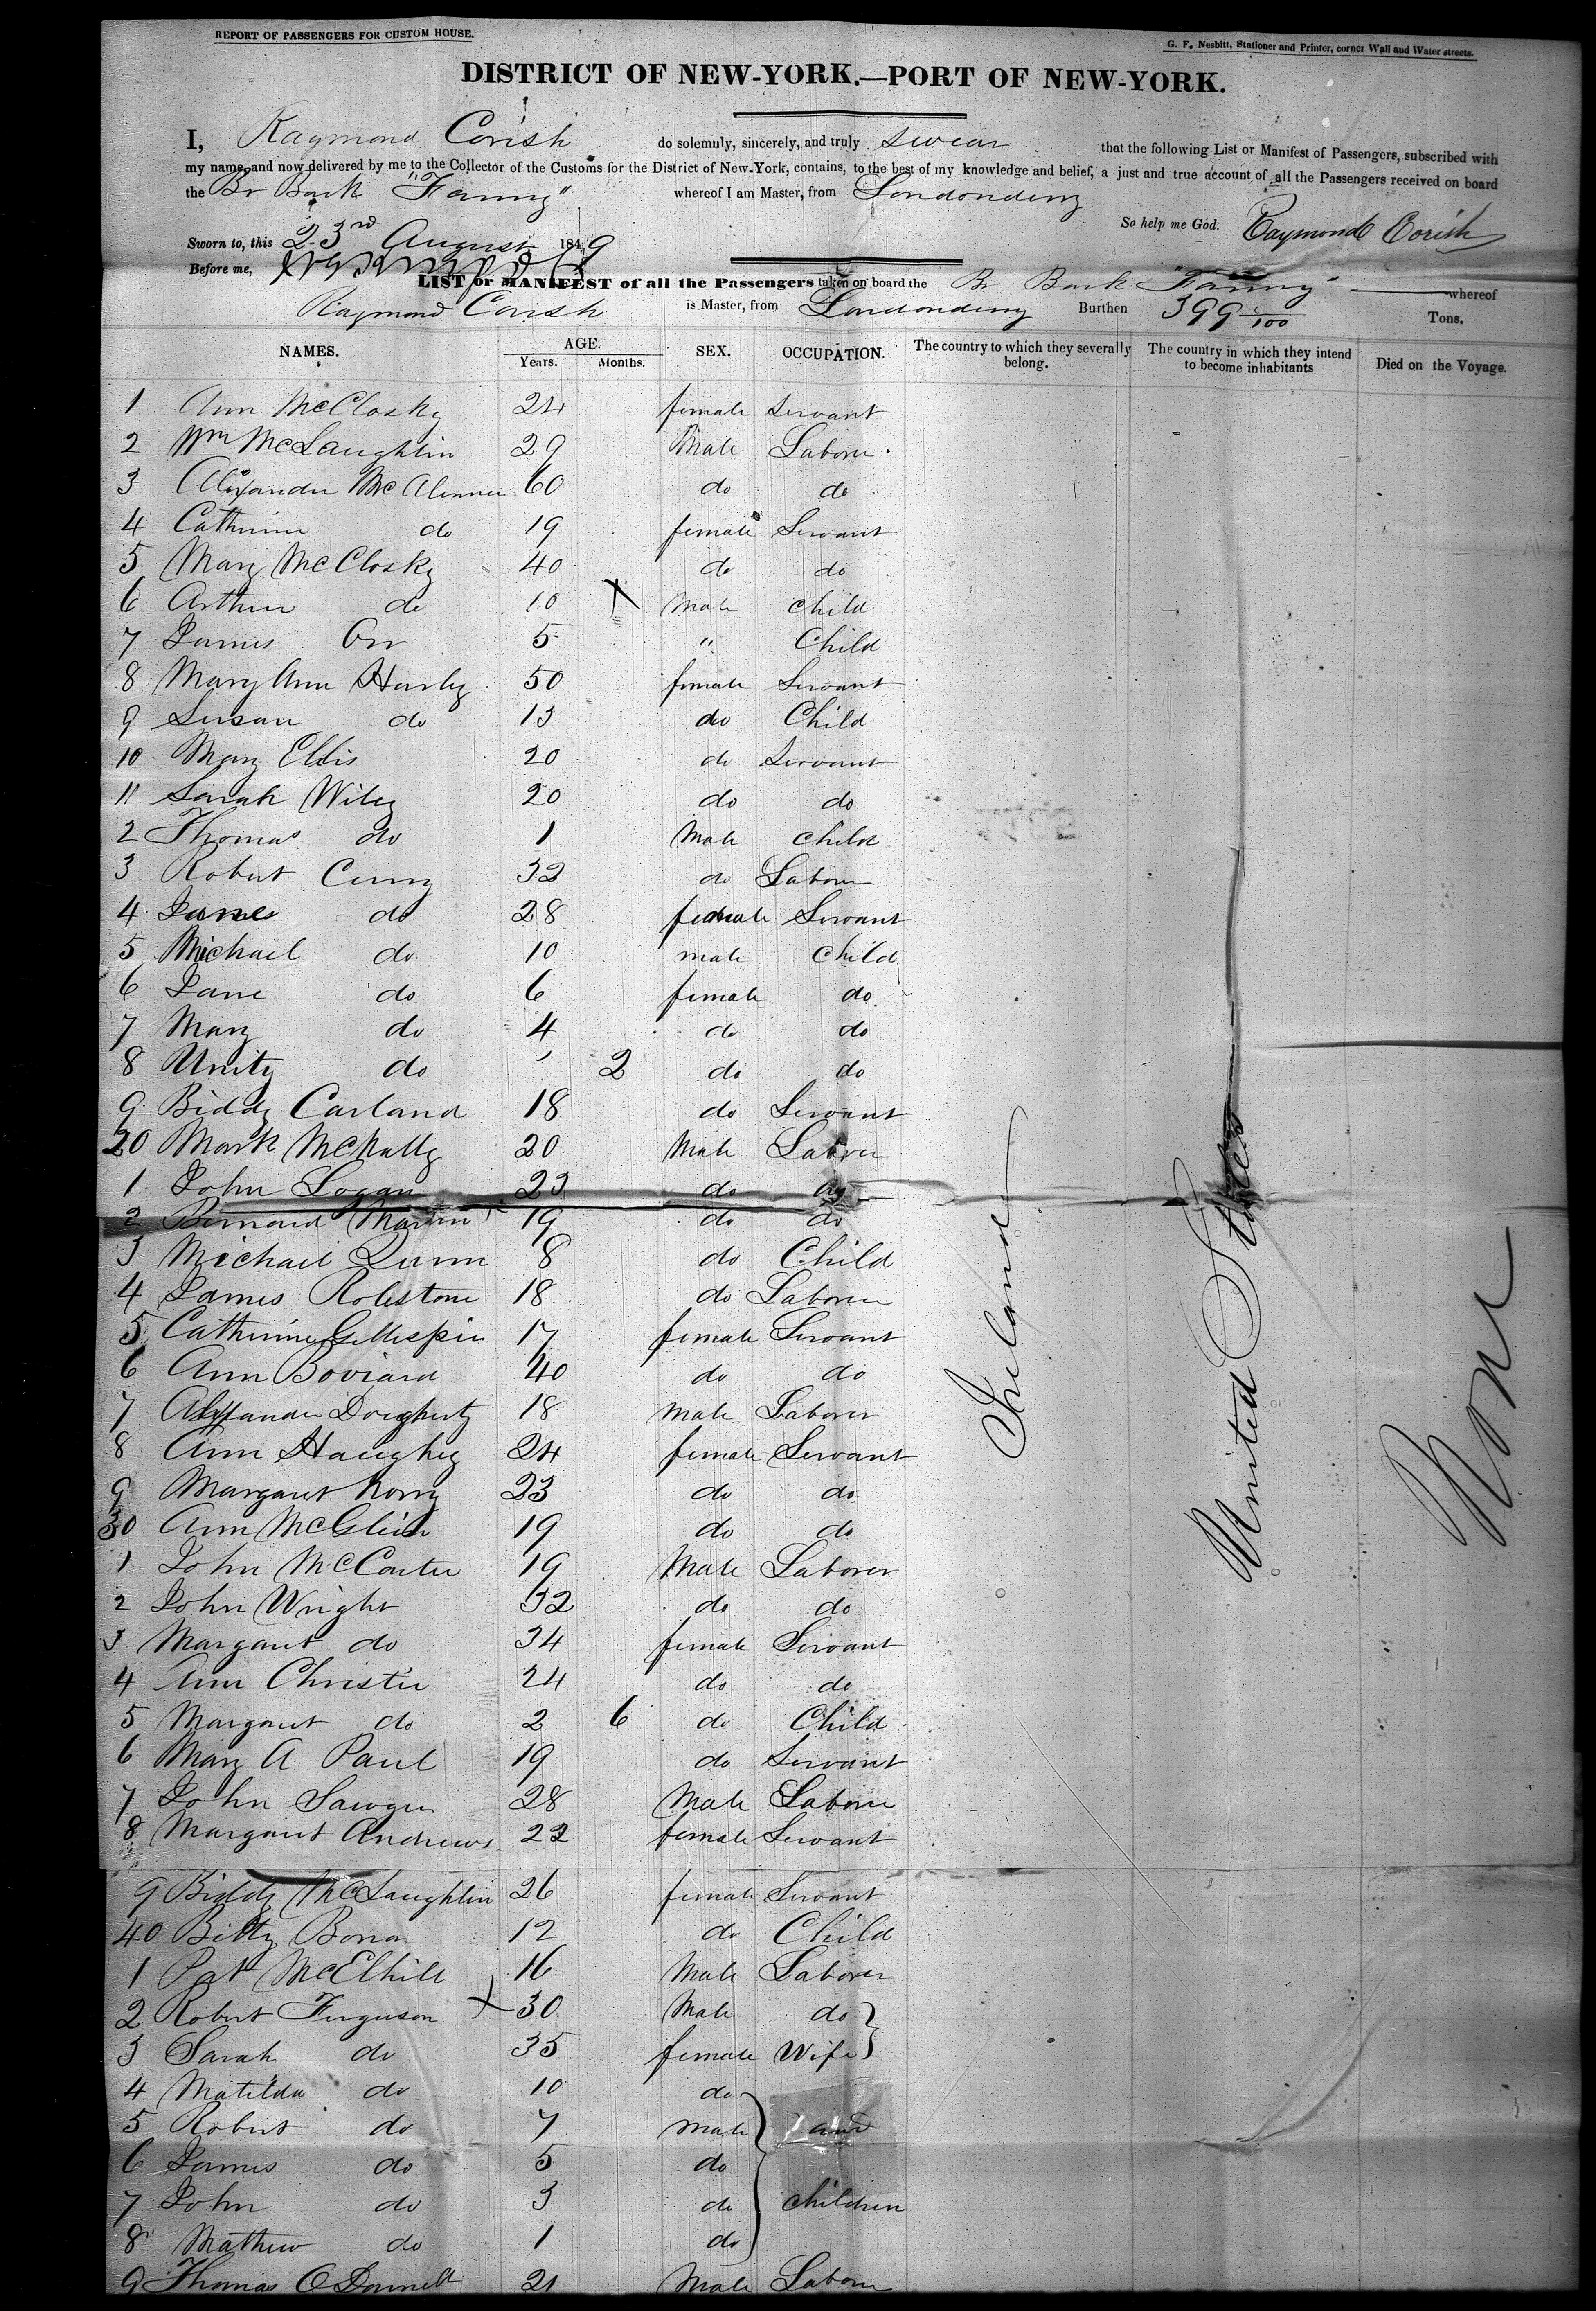 REPORT OF PASSENGERS FOR CUSTOM HOUSE.
G. F. Nesbitt, Stationer and Printer, corner Wall and Water streets.
DISTRICT OF NEW-YORK.—PORT OF NEW-YORK.
I, Raymond Corish do solemnly, sincerely, and truly swear that the following List or Manifest of Passengers, subscribed with
my name, and now delivered by me to the Collector of the Customs for the District of New-York, contains, to the best of my knowledge and belief, a just and true account of all the Passengers received on board
the Br Bark "Fanny" whereof I am Master, from Londonderry
So help me God. Raymond Corish
Sworn to, this 23rd August 1849
Before me,
LIST or MANIFEST of all the Passengers taken on board the Br Bark "Fanny" whereof
Raymond Corish is Master, from Londonderry Burthen 399 /100 Tons.
NAMES. AGE. Years. Months. SEX. OCCUPATION. The country to which they severally belong. The country in which they intend to become inhabitants Died on the Voyage.
1 Ann McClosky 24 female Servant
2 Wm McLaughlin 29 Male Laborer
3 Alexander McAlenner 60 do do
4 Catherine do 19 female Servant
5 Mary McClosky 40 do do
6 Arthur do 10 X Male Child
7 James Orr 5 " Child
8 Mary Ann Hurly 50 female Servant
9 Susan do 13 do Child
10 Mary Ellis 20 do Servant
11 Sarah Wiley 20 do do
2 Thomas do 1 Male Child
3 Robert Curry 32 do Laborer
4 Jane do 28 female Servant
5 Michael do 10 male Child
6 Jane do 6 female do
7 Mary do 4 do do
8 Unity do 2 do do
9 Biddy Carland 18 do Servant
20 Mark McNally 20 Male Laborer
1 John Logan 23 do do
2 Bernard Martin 19 do do
3 Michael Quinn 8 do Child
4 James Rolestone 18 do Laborer
5 Catherine Gillespie 17 female Servant
6 Ann Boviard 40 do do
7 Alexander Dougherty 18 Male Laborer
8 Ann Haughey 24 female Servant
9 Margaret Norry 23 do do
30 Ann McGlinn 19 do do
1 John McCarter 19 Male Laborer
2 John Wright 32 do do
3 Margaret do 34 female Servant
4 Ann Christie 24 do do
5 Margaret do 2 6 do Child
6 Mary A Paul 19 do Servant
7 John Sawyer 28 Male Laborer
8 Margaret Andrews 22 female Servant
9 Biddy McLaughlin 26 female Servant
40 Bitty Bonar 12 do Child
1 Pat McElhill 16 Male Laborer
2 Robert Ferguson X 30 Male do
3 Sarah do 35 female Wife
4 Matilda do 10 do
5 Robert do 7 male and
6 James do 5 do
7 John do 3 do children
8 Mathew do 1 do
9 Thomas O Donnell 21 Male Laborer
Ireland
United States
None